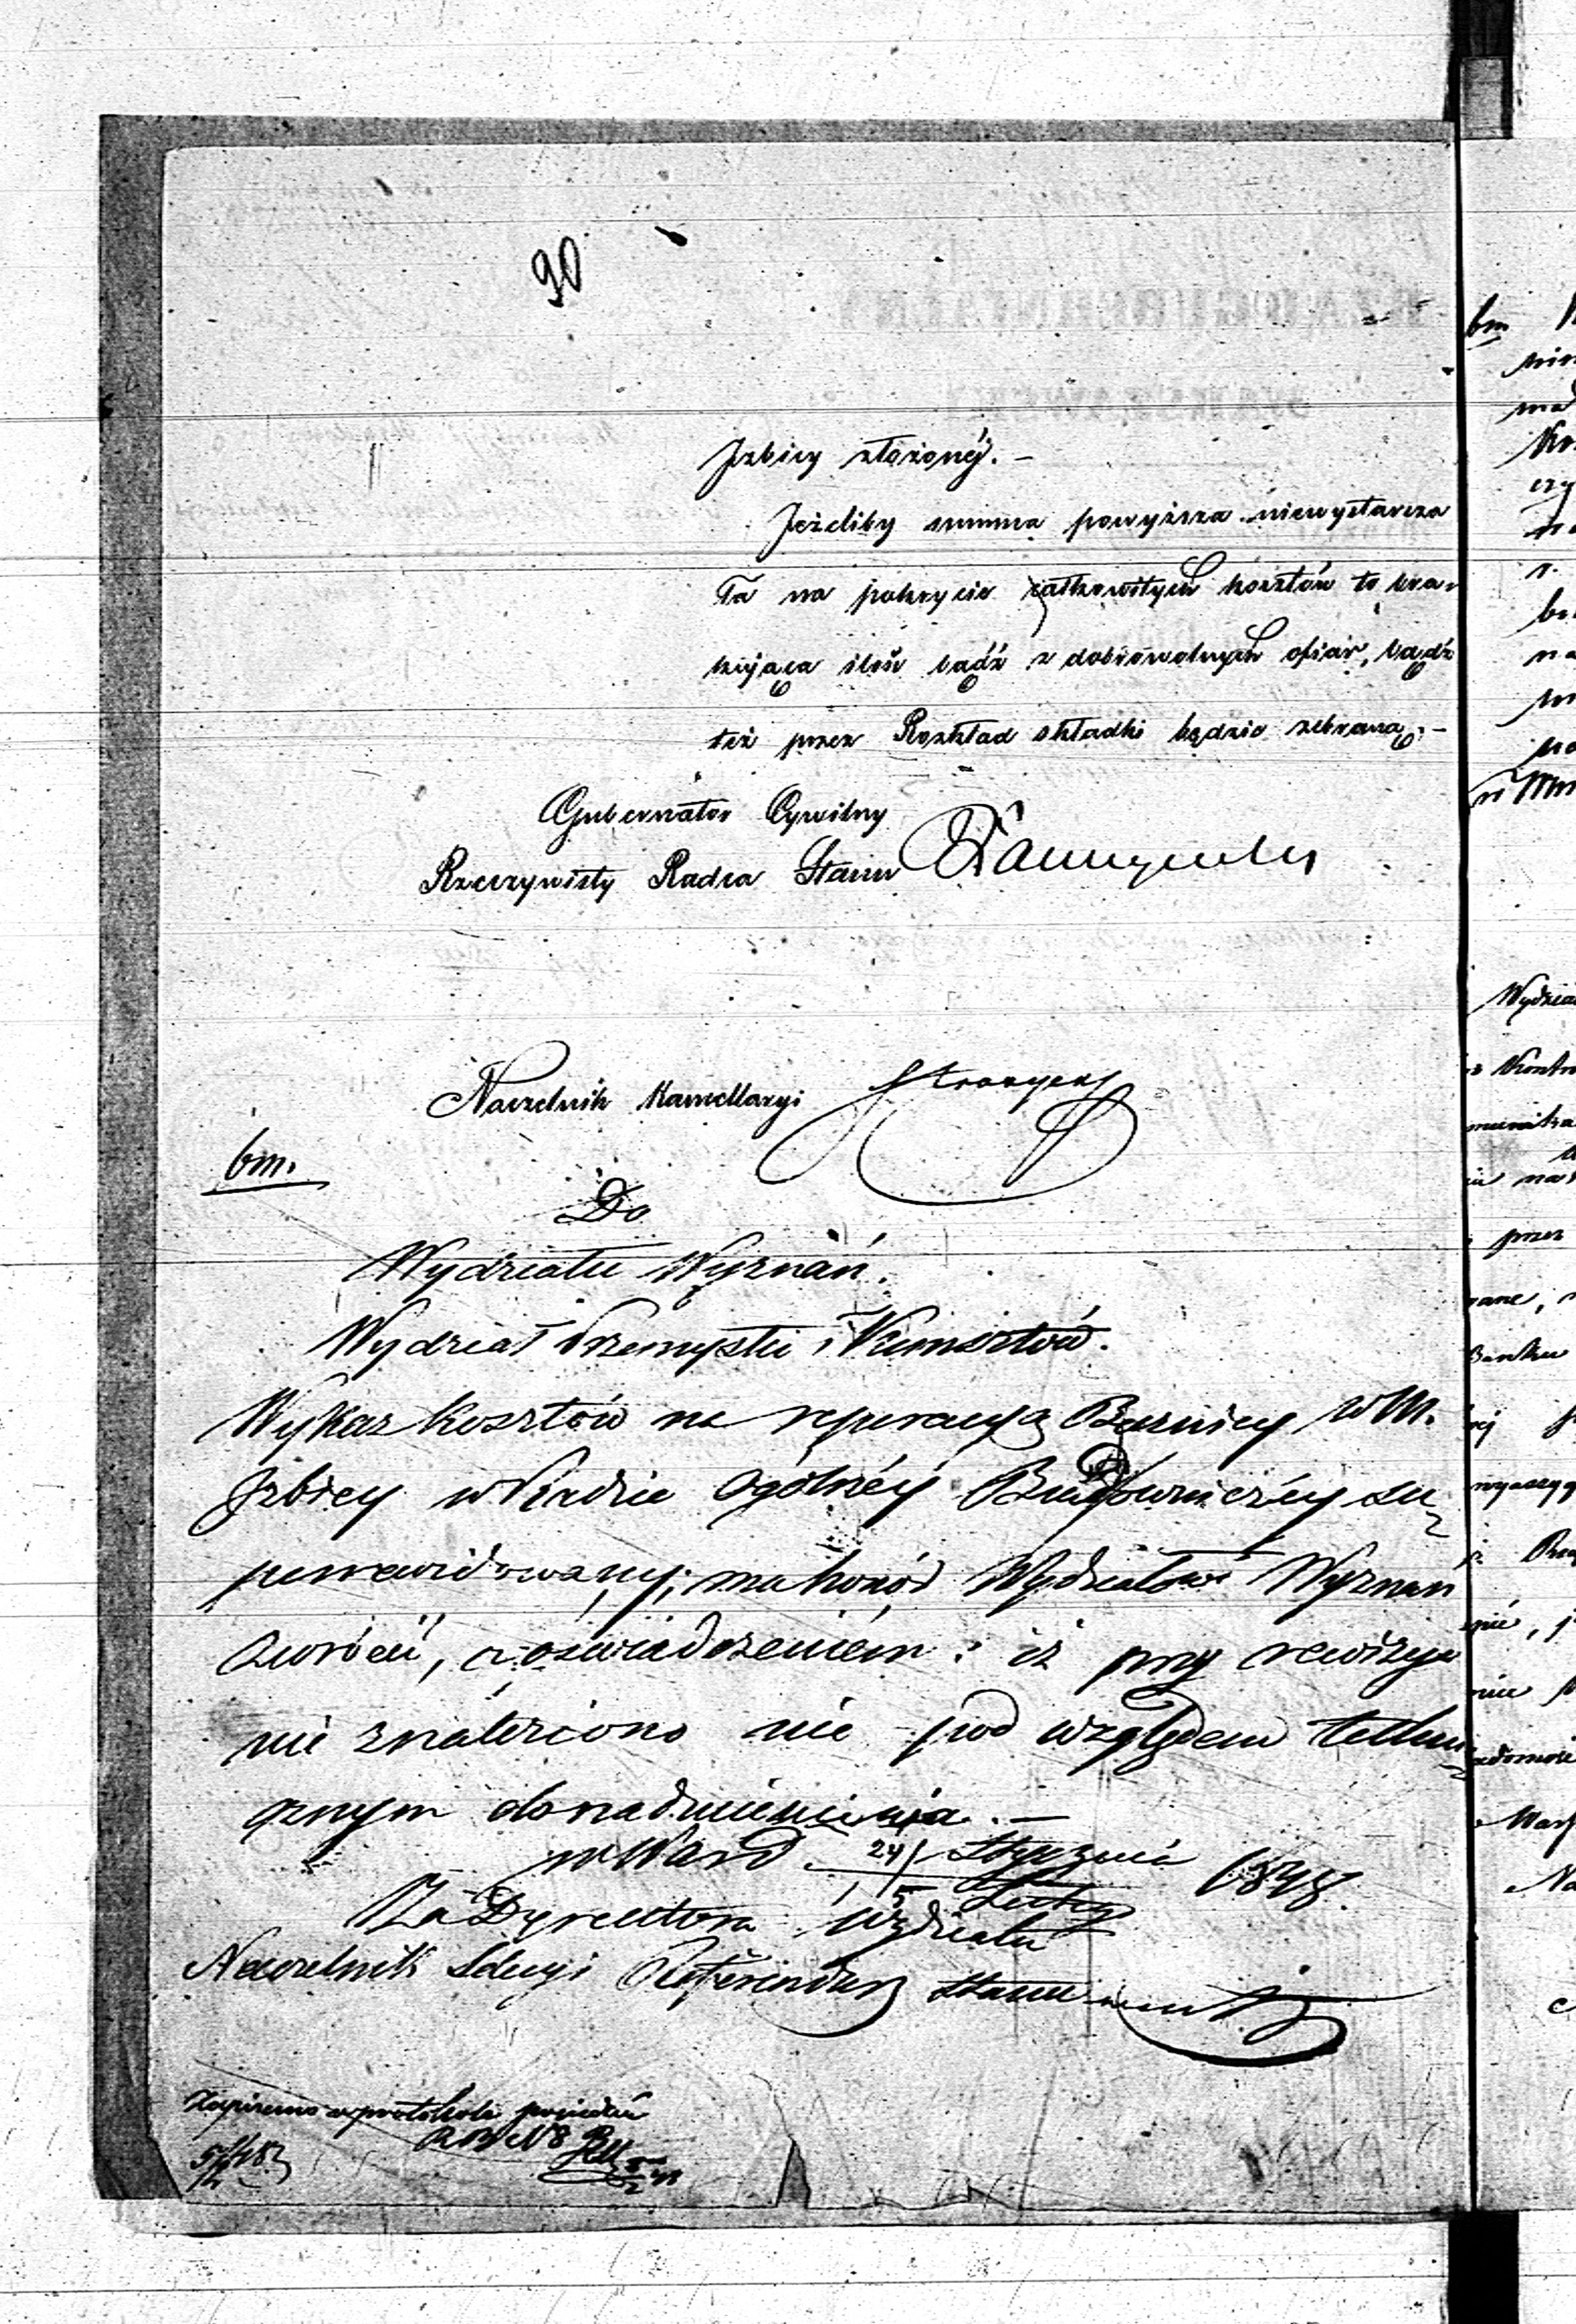 90
Izbicy złożonéj. —
Jeżeliby summa powyższa niewystarcza
ła na pokrycie całkowitych kosztów to bra-
kująca ilość bądź z dobrowolnych ofiar, bądź
też przez Rozkład składki będzie zebraną. —
Gubernator Cywilny
Rzeczywisty Radca Stanu
Naczelnik Kancellaryi
bm.
Do
Wydziału Wyznań.
Wydział Przemysłu i Kunsztów.
Wykaz kosztów na reperacyą Bużnicy w M.
Izbicy w Radzie Ogólnéj Budowniczéj zu
perrewidowany, ma honor Wydziałowi Wyznań
zwrócić, z oświadczeniem: iż przy rewizyi
nie znaleziono nic pod względem techni
cznym do nadmienienia. —
w Warsz. 24/5 Stycznia/Lutego 1848.
Za Dyrektora Wydziału
Naczelnik Sekcyi Referendarz Stanu
Zapisano w protokole posiedzeń